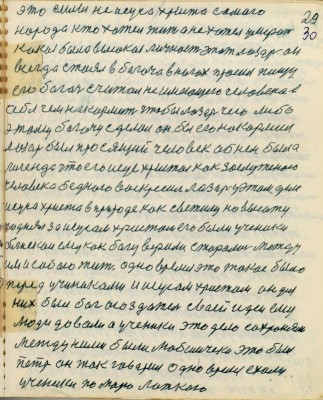 это сили не исуса христа самого
народа кто хотел жить а не хотел умират
какая была высокая личност этот лазар он
всегда стоял в богача в ногах просил пищу
его богач считал не имающего человека в
себя чем накормит чтобы лазар чего либо
этому богачу сделал он бы его накормил
лазар был просящий человек об нем была
легенда что его исус христос как заслуженого
человека бедного воскресил лазаря этот для
исуса христа в природе как светило на высоту
поднял за исусам христом его были ученики
ему как богу верили старалис между
ими собою жит одно время это такое было
перед учиниками и исусам христом он для
них был бог создател своей идеи ему
люди давали а ученики это дело сохраняли
между ними были это был
петр он так гаварил одно время ехали
ученики по марю
29
30